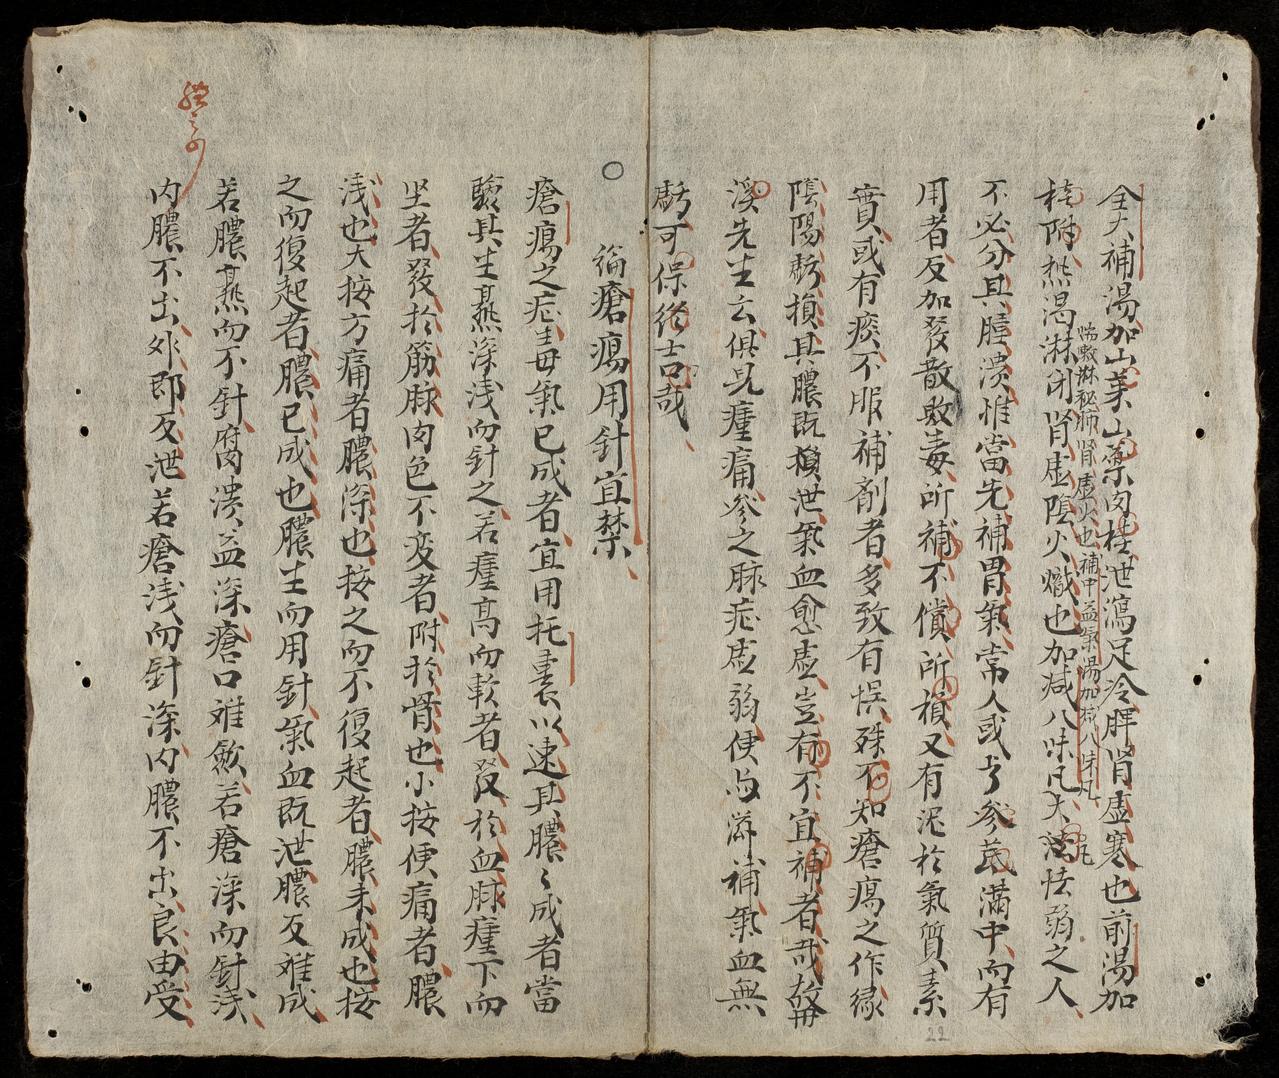 全大補湯加山茱山藥肉桂泄瀉足冷脾腎虚寒也前湯加
喘嗽淋秘肺腎虚火也補中益氣湯加减八味凡
桂附热渴淋闭腎虚陰火熾也加减八味凡大法怯弱之人
不必分其腫潰惟當先補胃氣常人或与參茋滿中而有
用者反加發散敗毒所補不償所損又有泥於氣質素
實或有痰不服補劑者多致有悮殊不知瘡瘍之作縁
陰陽虧損其膿既損泄氣血愈虚豈有不宜補者哉故丹
溪先生云俱見瘇痛參之脉症虚弱便与滋補氣血無
虧可保終吉哉
○
論瘡瘍用針宜禁
瘡瘍之症毒氣已成者宜用托裏以速其膿〻成者當
驗其生熟深浅而針之若瘇髙而軟者發於血脉瘇下而
坚者發於筋脉肉色不变者附於骨也小按便痛者膿
浅也大按方痛者膿深也按之而不復起者膿未成也按
之而復起者膿已成也膿生而用針氣血既泄膿反难成
若膿熟而不針腐潰益深瘡口难斂若瘡深而針浅
内膿不出外即反泄若瘡浅而針深内膿不出良由受
22